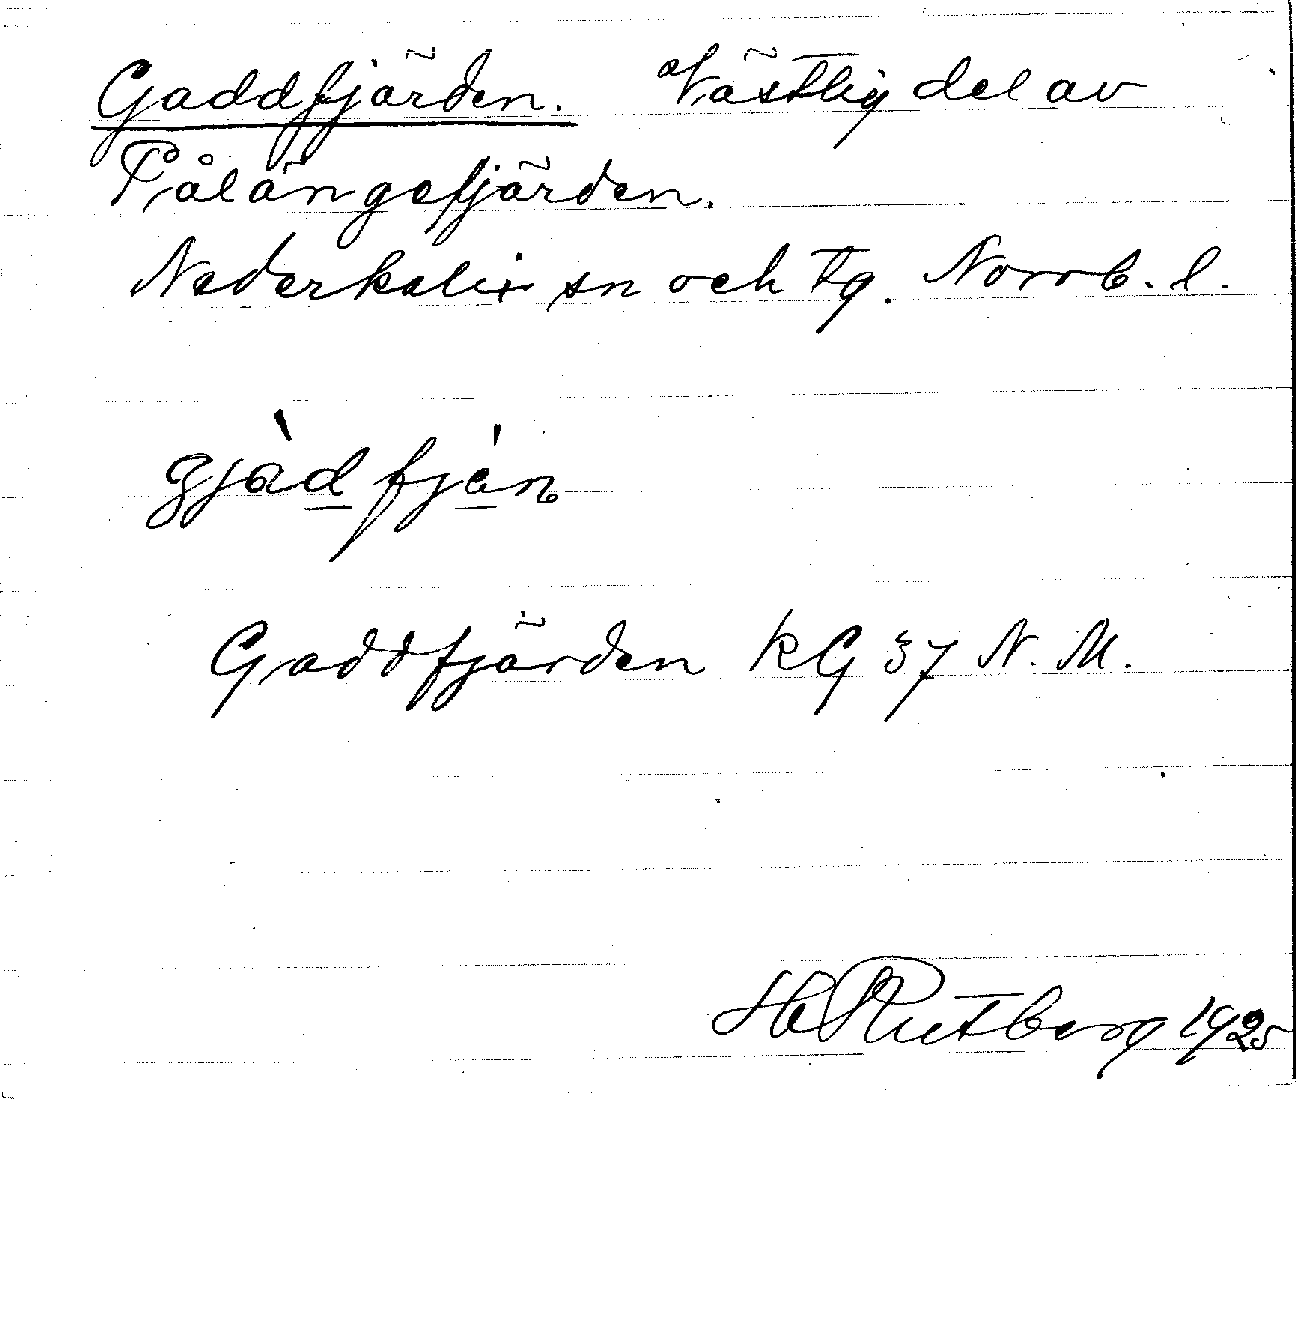 Gaddfjärden. Västlig del av
Pålängefjärden.
Nederkalix sn och tg. Norrb. l.
gjàd fján
Gaddfjärden KG 37 N. M.
H Rutberg 1925